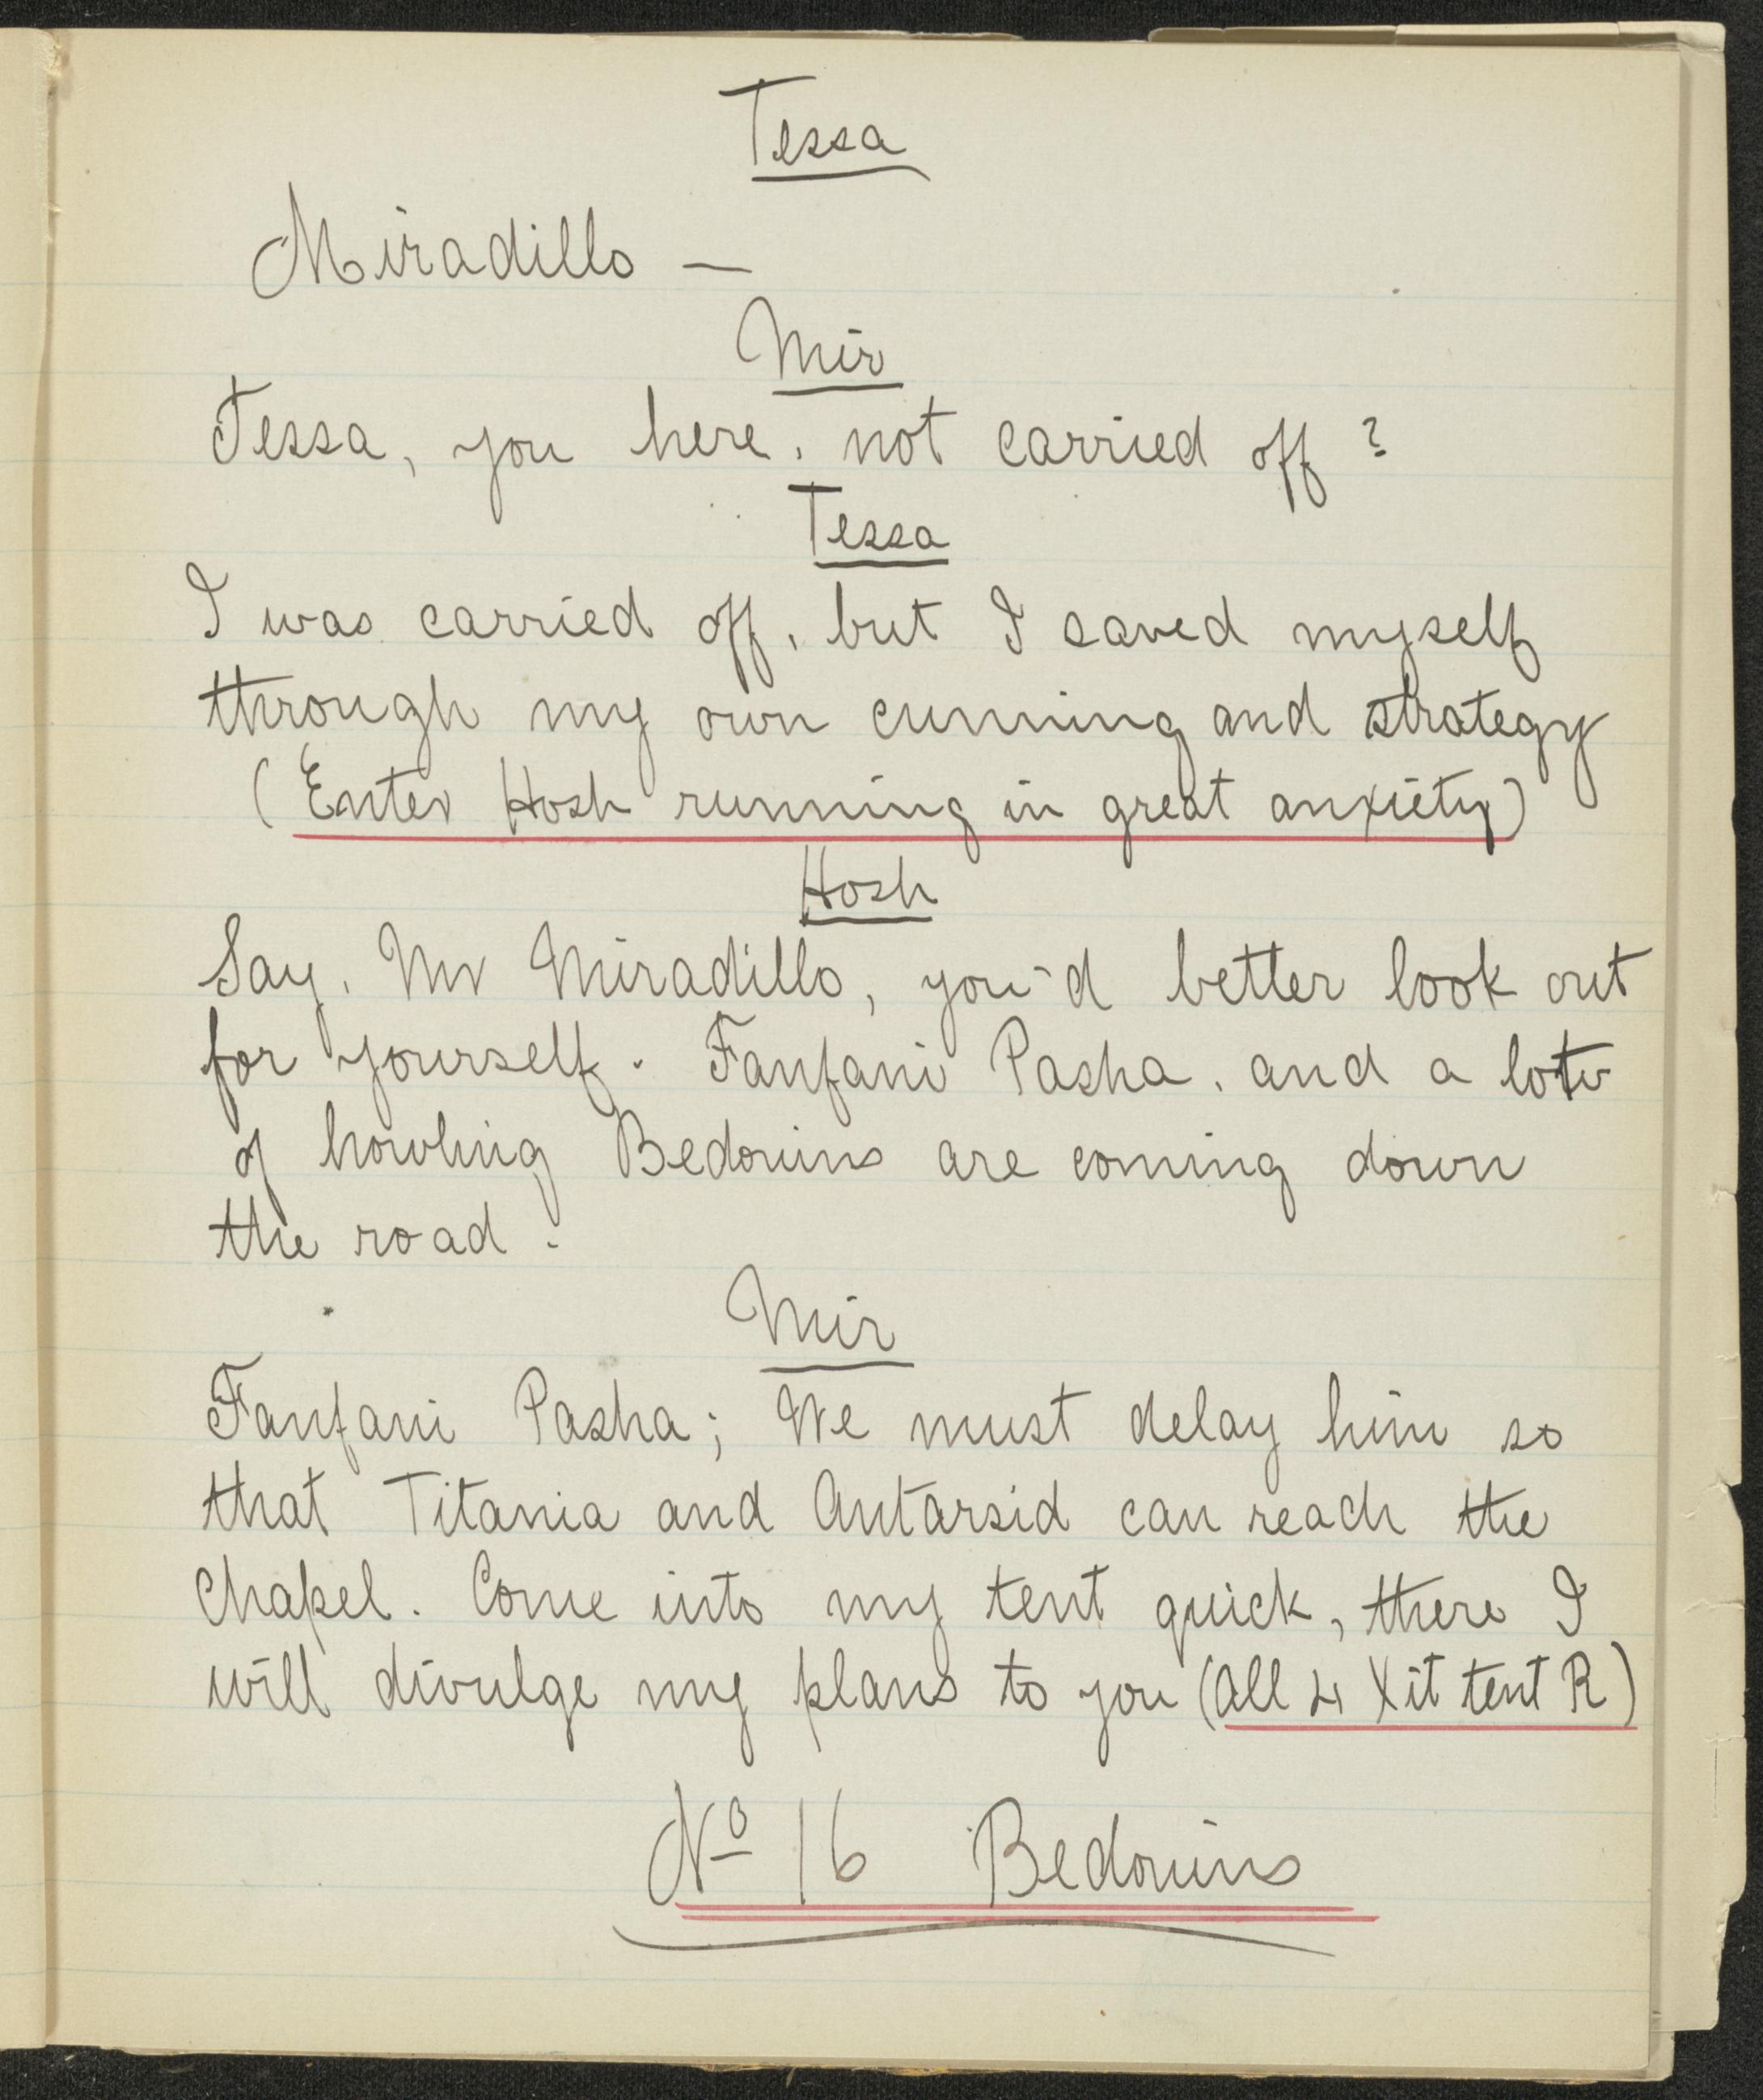 Tessa
Miradillo —
Mir
Tessa, you here, not carried off?
Tessa
I was carried off, but I saved myself
through my own cunning and strategy
(Enter Hosh running in great anxiety)
Hosh
Say, Mr Miradillo, you'd better look out
for yourself. Fanfani Pasha, and a lot
of howling Bedouins are coming down
the road.
Mir
Fanfani Pasha; We must delay him so
that Titania and Antarsid can reach the
Chapel. Come into my tent quick, there I
will divulge my plans to you (All 4 Xit tent R)
Nº 16 Bedouins